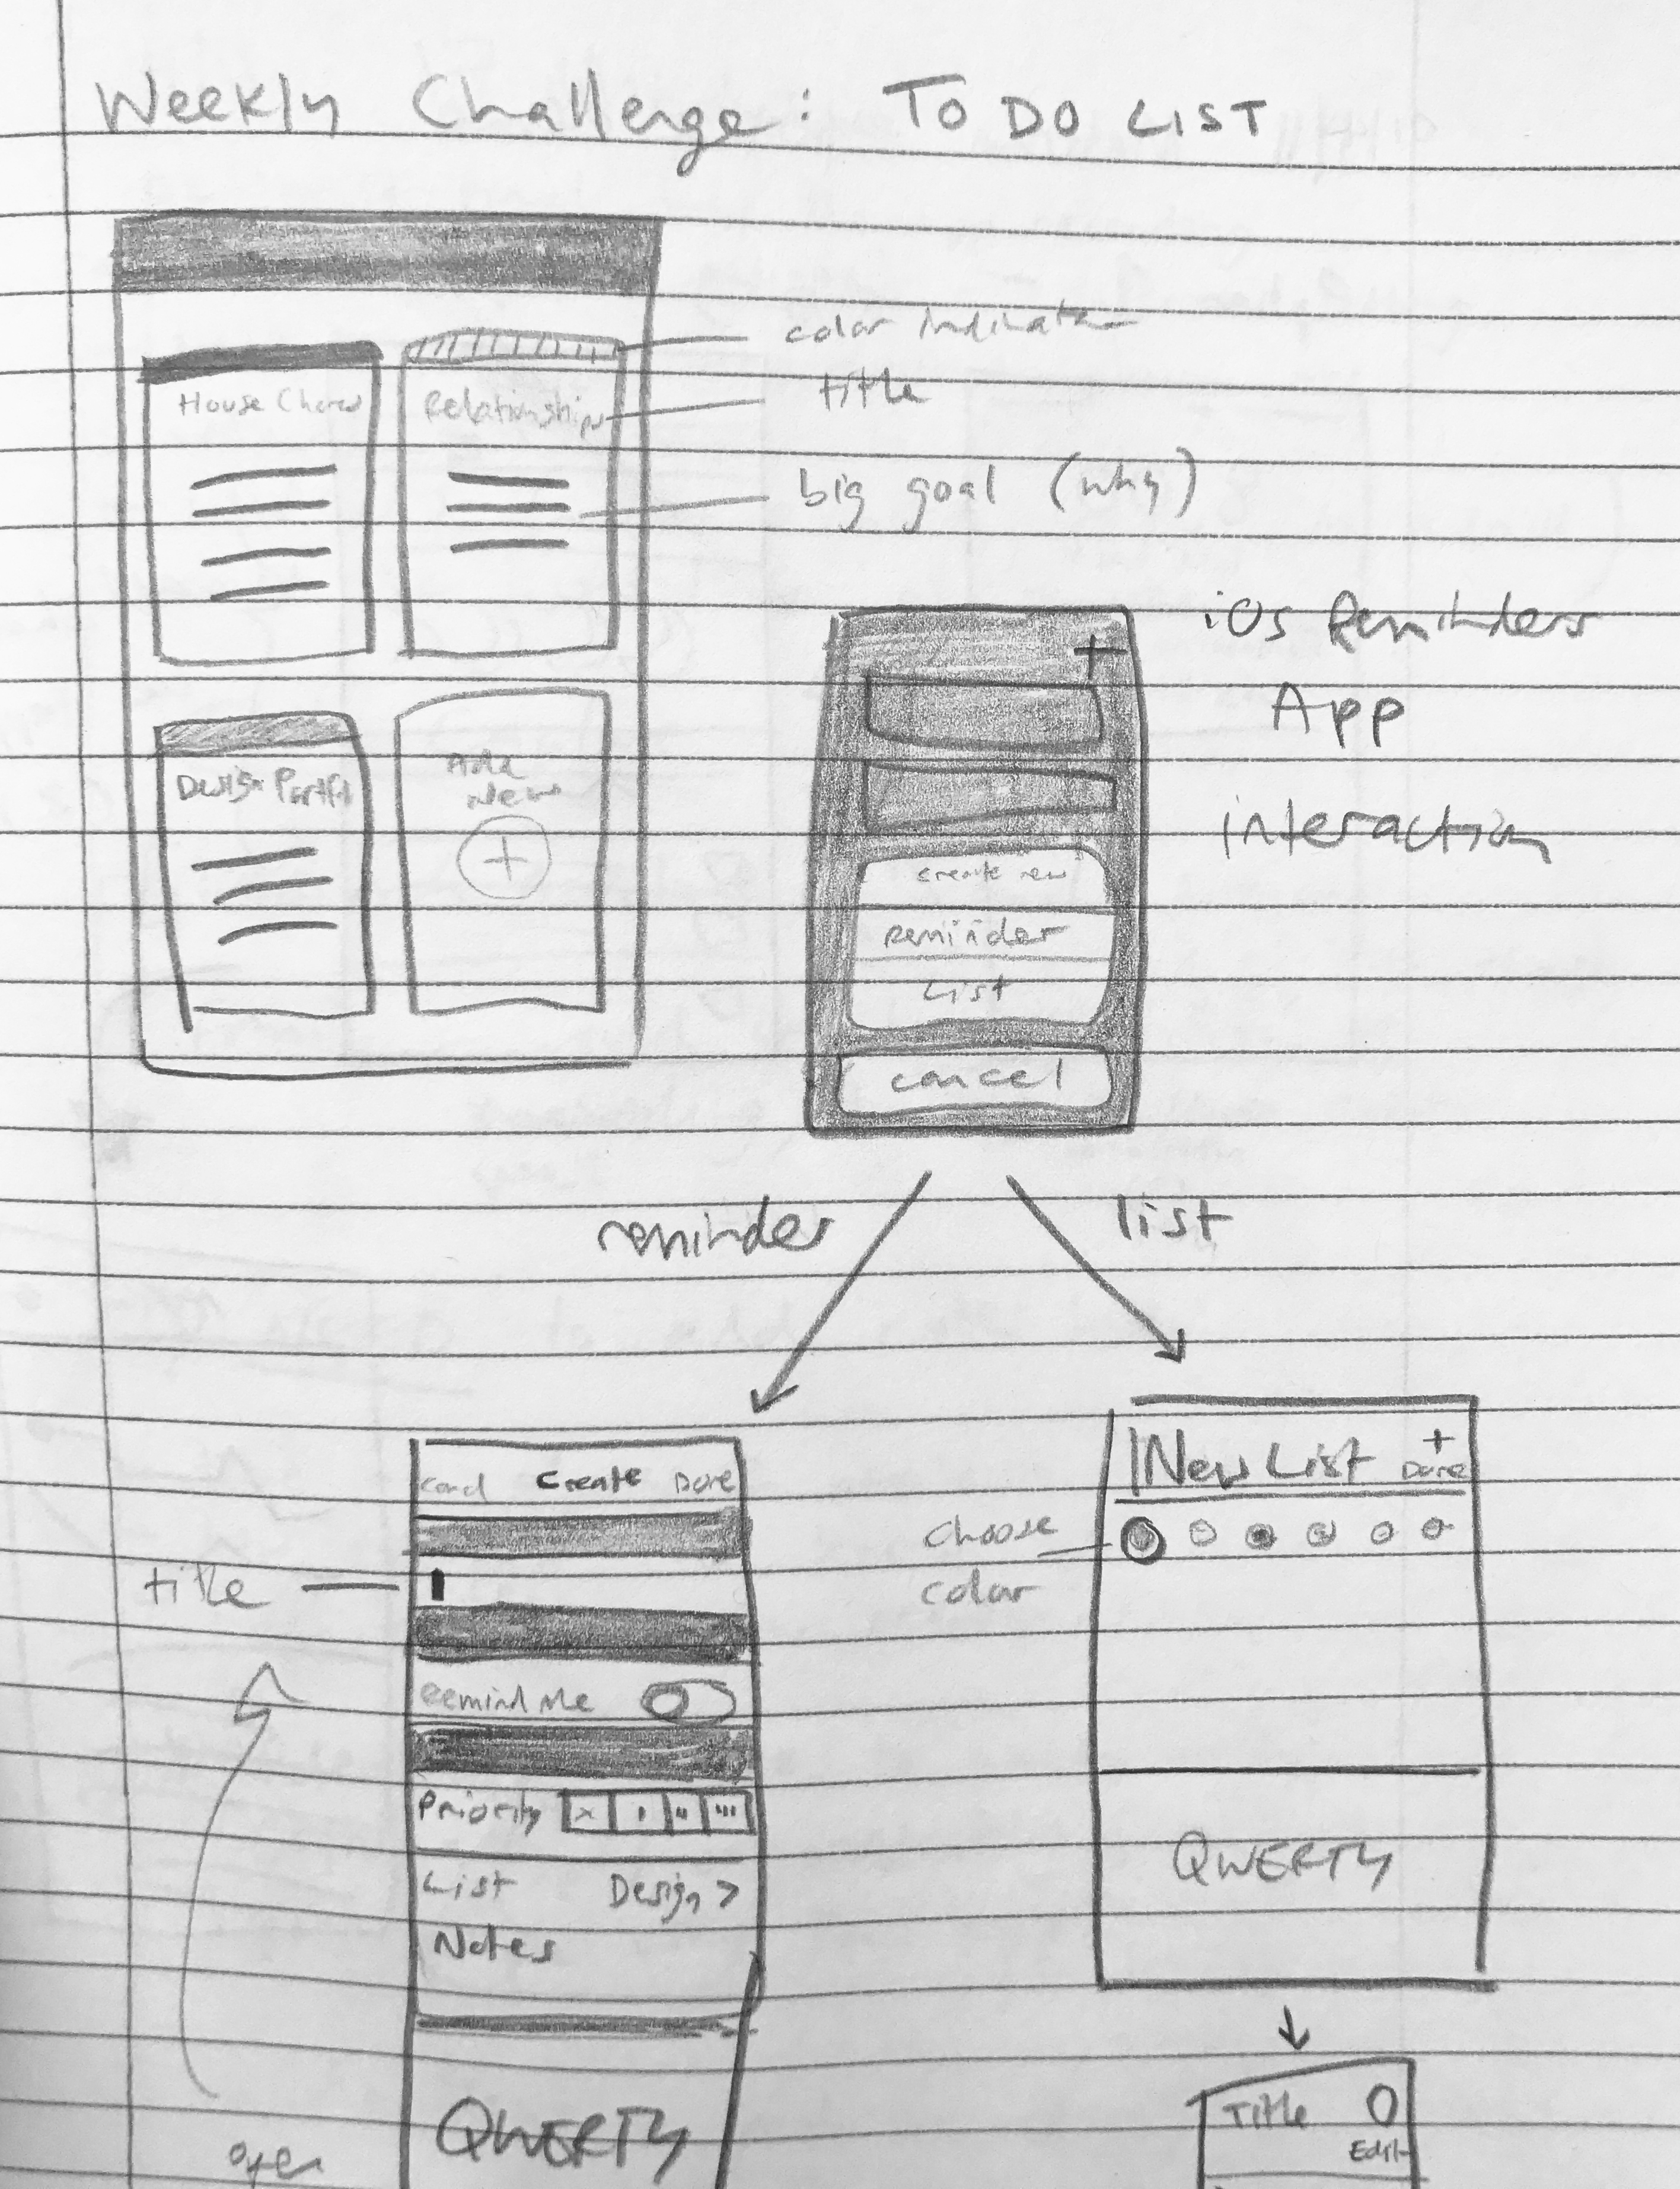 Weekly Challenge: TO DO LIST
color indicator
House Chores
Relationships
title
big goal (why)
iOS Reminders
App
interaction
Add
New
+
Design Portfo
+
create new
reminder
List
cancel
reminder
list
Cancel Create Done
title
Remind Me
Priority
List Design >
Notes
QWERTY
open
New List +
Done
choose
color
QWERTY
Title
Edit